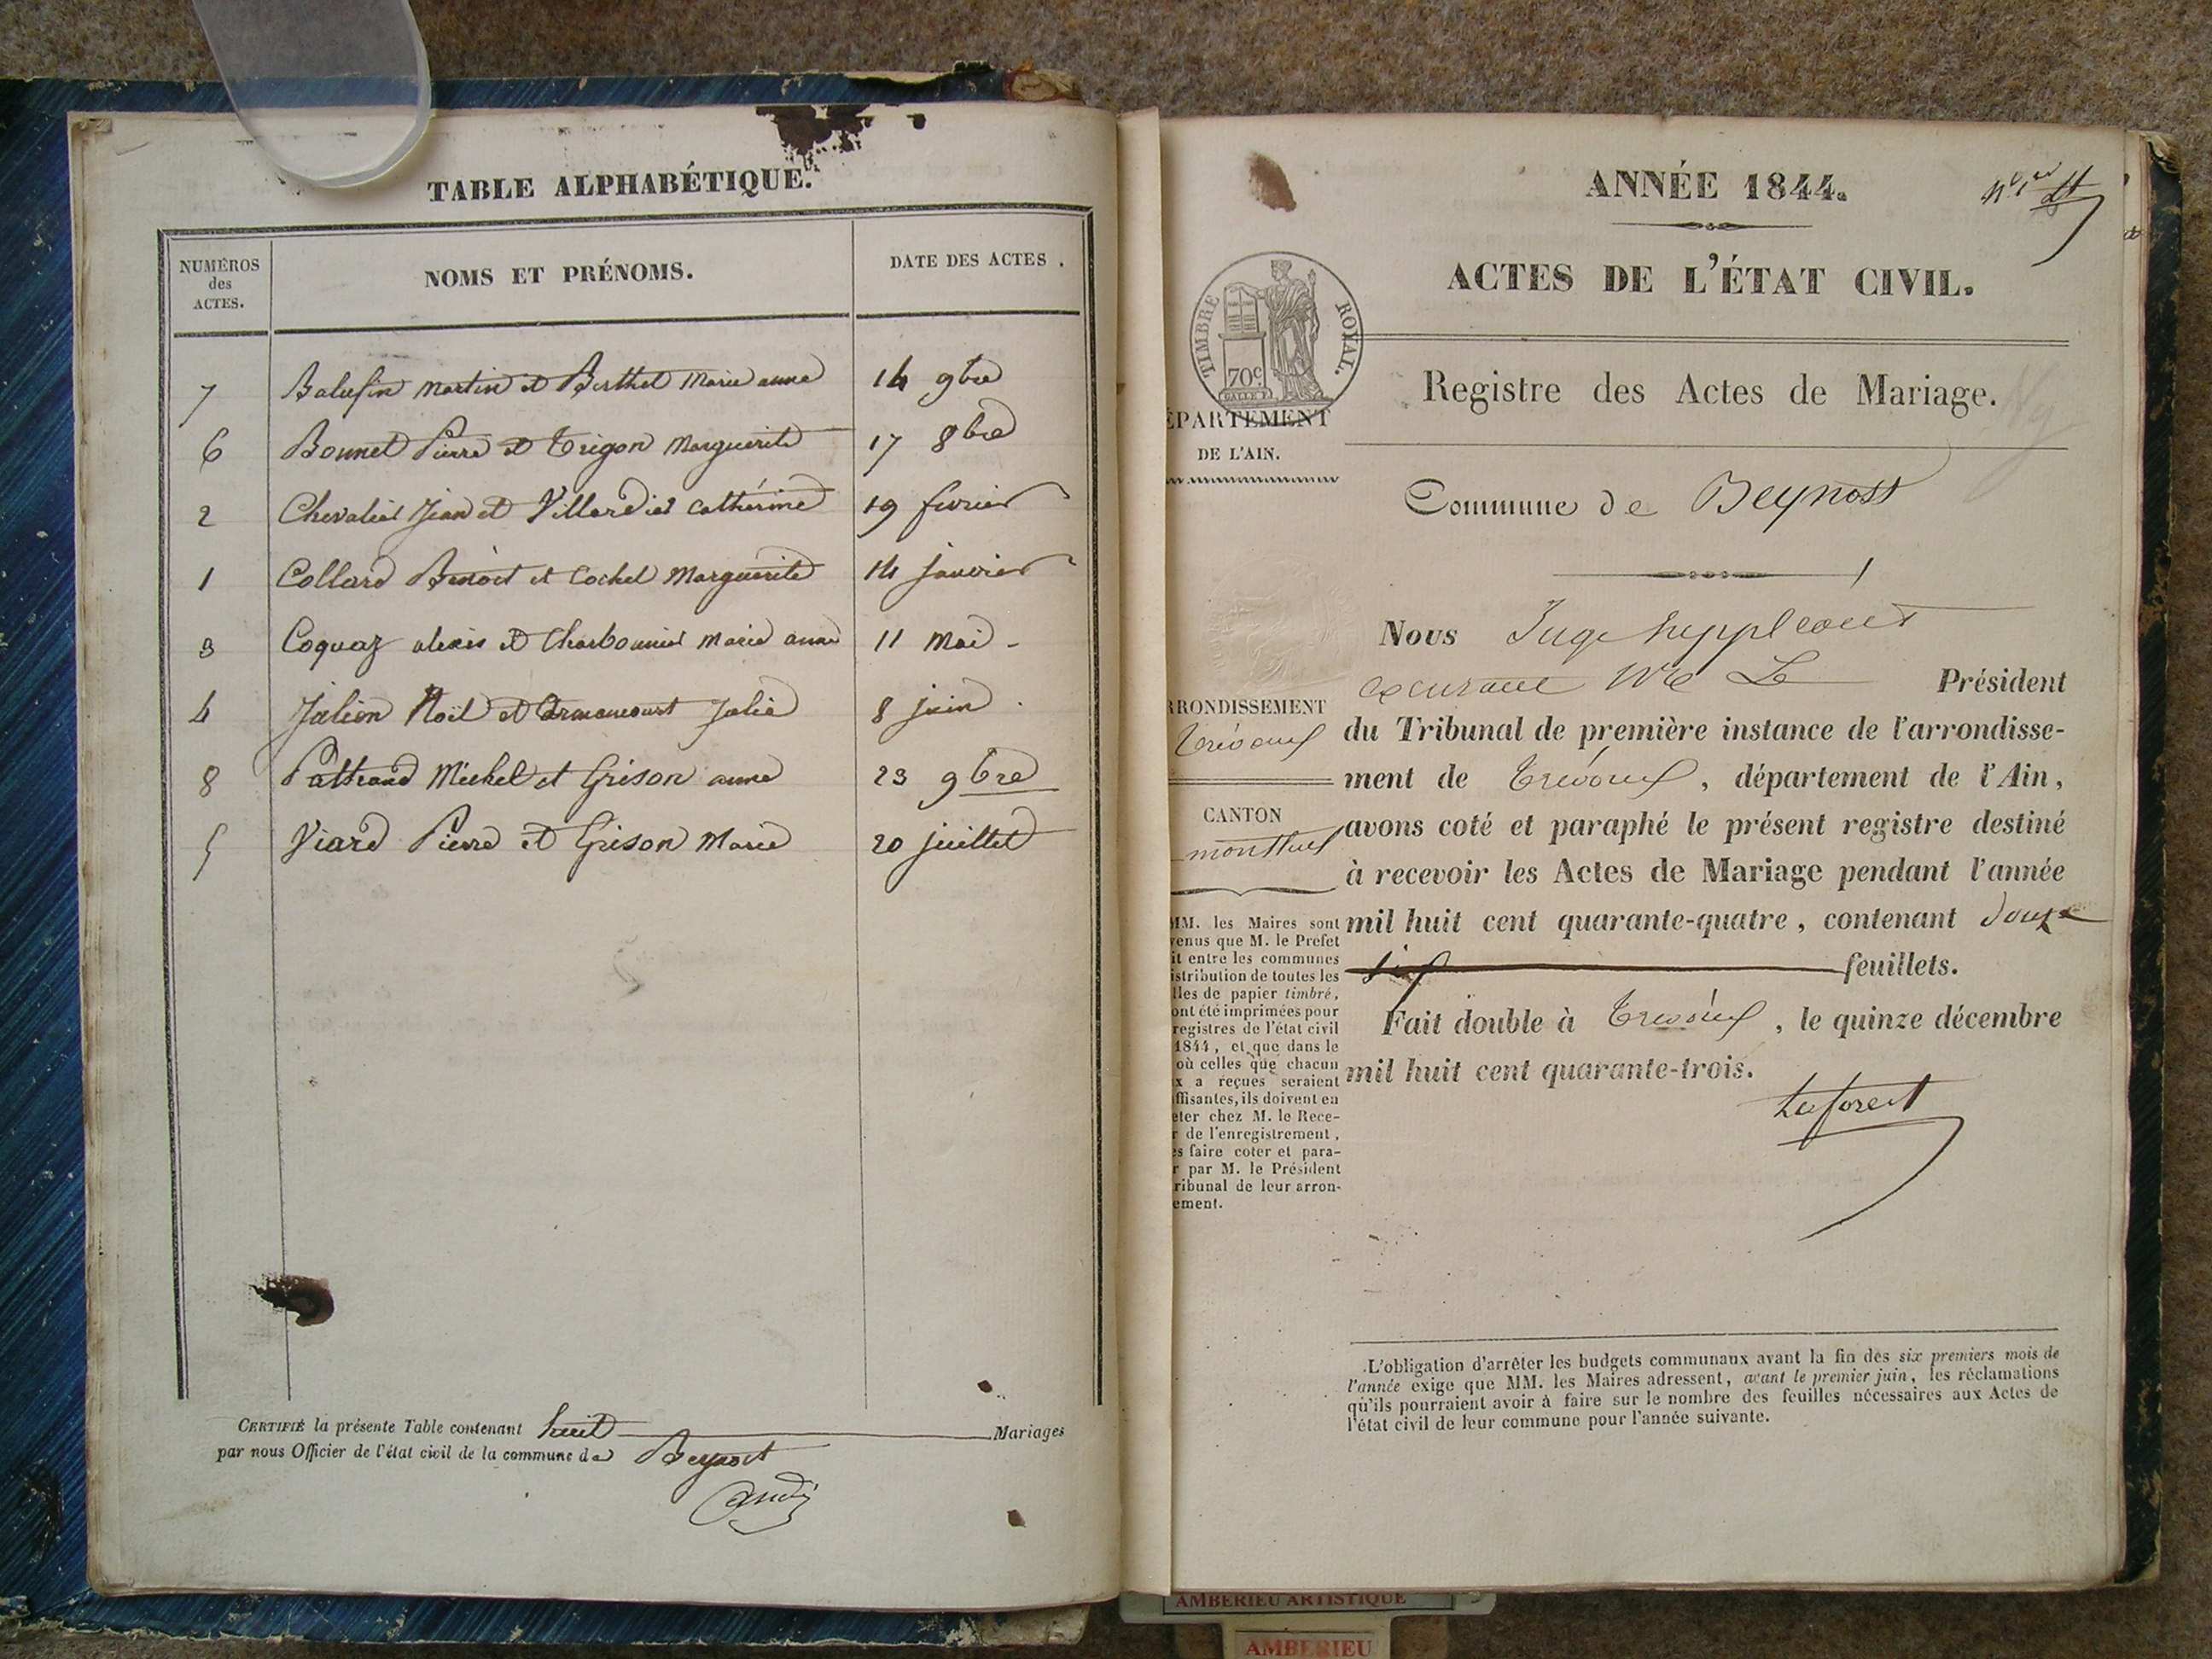 TABLE ALPHABÉTIQUE.
NUMÉROS des ACTES. NOMS ET PRÉNOMS. DATE DES ACTES.
7 Balufin Martin et Berthet Marie anne 14 9bre
6 Bonnet Pierre et Trigon Marguerite 17 8bre
2 Chevalier Jean et Villardier Catherine 19 fevrier
1 Collard Benoit et Cochet Marguerite 14 janvier
3 Coquaz alexis et Charbonnier Marie anne 11 Mai
4 Julien Noël et Julie 8 juin
8 Michel et Grison anne 23 9bre
5 Viard Pierre et Grison Marie 20 juillet
CERTIFIÉ la présente Table contenant huit Mariages
par nous Officier de l'état civil de la commune de Beynost
ANNÉE 1844.
ACTES DE L'ÉTAT CIVIL.
TIMBRE ROYAL.
70c
Registre des Actes de Mariage.
ÉPARTEMENT
DE L'AIN.
Commune de Beynost
Nous Juge suppleant
Président
RRONDISSEMENT
Trévoux
du Tribunal de première instance de l'arrondisse-
ment de Trévoux, département de l'Ain,
CANTON
montluel
avons coté et paraphé le présent registre destiné
à recevoir les Actes de Mariage pendant l'année
mil huit cent quarante-quatre, contenant douze
feuillets.
Fait double à Trévoux, le quinze décembre
mil huit cent quarante-trois.
Laforest
MM. les Maires sont
venus que M. le Préfet
it entre les communes
istribution de toutes les
lles de papier timbré,
ont été imprimées pour
registres de l'état civil
1844, et que dans le
où celles que chacun
x a reçues seraient
ffisantes, ils doivent en
eter chez M. le Rece-
r de l'enregistrement,
es faire coter et para-
r par M. le Président
ribunal de leur arron-
ement.
L'obligation d'arrêter les budgets communaux avant la fin des six premiers mois de
l'année exige que MM. les Maires adressent, avant le premier juin, les réclamations
qu'ils pourraient avoir à faire sur le nombre des feuilles nécessaires aux Actes de
l'état civil de leur commune pour l'année suivante.
AMBERIEU ARTISTIQUE
AMBERIEU